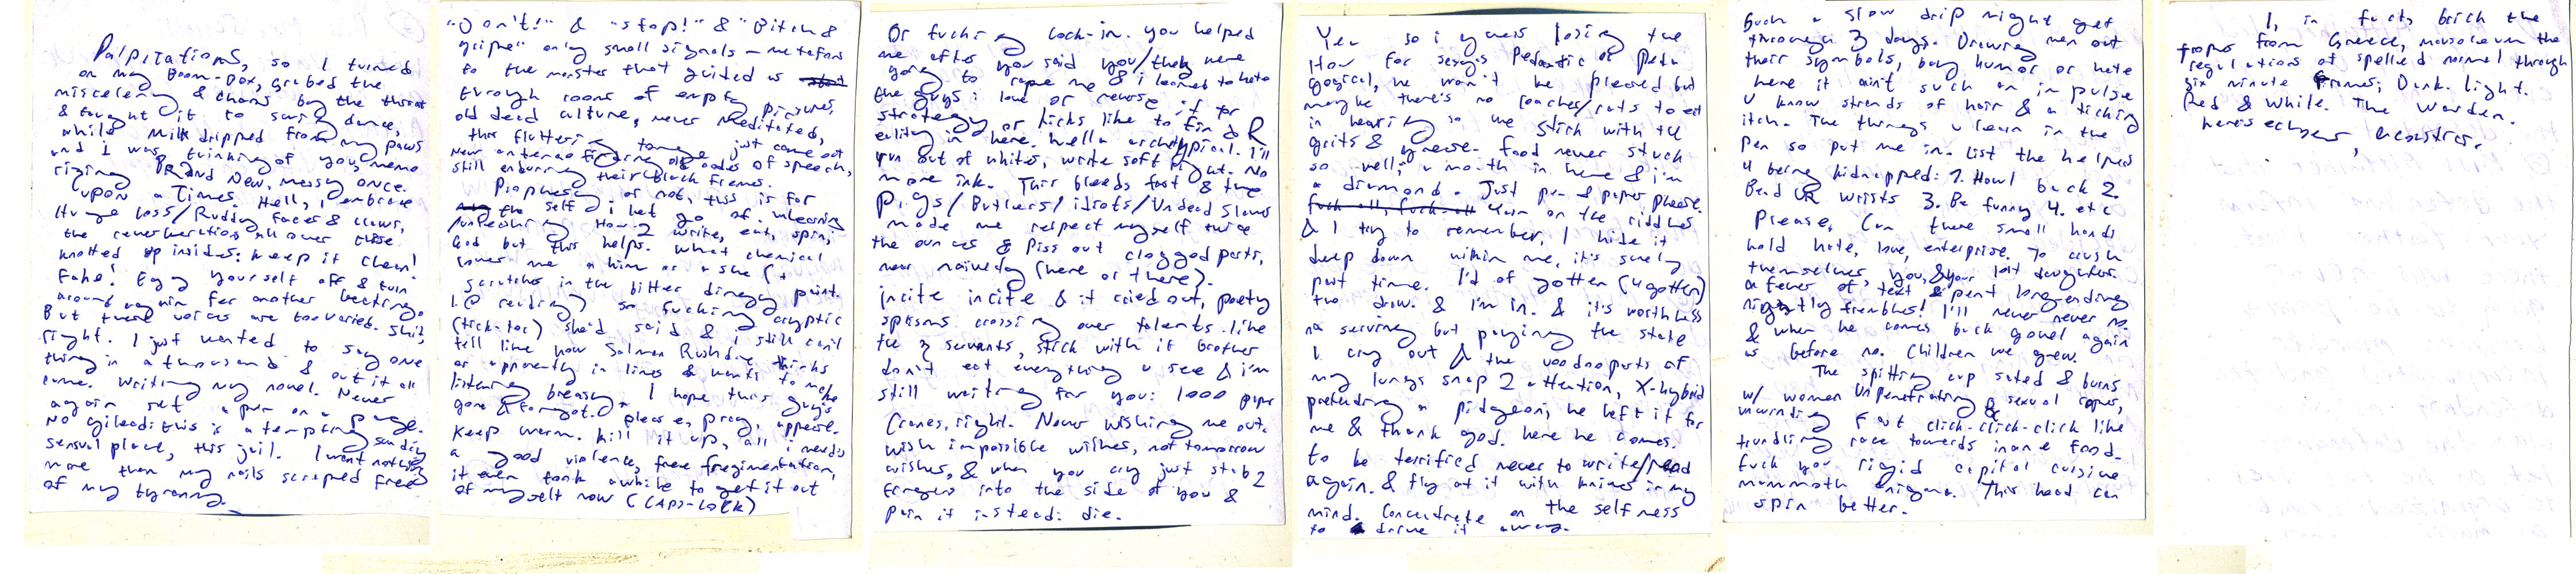 Palpitations, so I turned
on my Boom-Box, grabed the
misceleny & chains by the throat
& taught it to swing dance,
while Milk dripped from my paws
and I was thinking of you, memo
rizing BRand New, messy once.
upon a Times. Hell, I embrace
Huge loss/Ruddy faces & claws,
the reverberations all over these
knotted up insides: keep it clean!
Fake! Egg yourself off & turn
around again for another beating.
But these voices are too varied. Shit,
right. I just wanted to say one
thing in a thousand & out it all
came. Writing my novel. Never
again set a pen on a page.
No gilead: this is a tempting
sensual place, this jail. I want nothing
more than my nails scraped free
of my tyranny.
"Don't!" & "stop!" & "Bitch &
gripe" only small signals — metafors
to the monster that guided us
through rooms of empty pictures,
old dead culture, never meditated,
this fluttering tongue just come out
new antenae fingering old codes of speech,
still enduring their block frames.
Prophesy or not, this is for
the self i let go of. unlearning
/unleashing How 2 write, eat, spin,
God but this helps. What chemical
cover me a him or a she (+
scratches in the bitter dinggy paint.
so fucking cryptic
(tick-toc) she'd said & I still can't
tell like how Salman Rushdie thinks
or apparently in lines & wants to make
listening breasy. I hope this guy's
gone & forgot. please, pray, appease.
Keep warm. kill it up, all i need's
a good violence, free fregimentation,
it even took awhile to get it out
of myself now (CAPS-LOCK)
Or fucking lock-in. you helped
me after you said you/they were
going to rape me & i learned to hate
the guys i love or reverse it for
strategy or kicks like to find R
eality in here. hella archtypical. I'll
run out of whites, write soft light. No
more ink. This bleeds fast & the
Pigs/Butlers/idiots/Undead Slaves
made me respect myself twice
the ounces & Piss out clogged parts,
near naivedy (here or there).
incite incite & it cried out, poety
spasms crossing over talents. like
the 3 servants, stick with it brother
don't eat everything u see & i'm
still waiting for you: 1000 paper
Cranes, right. Never wishing me out.
wish impossible wishes, not tomorrow
wishes, & when you cry just stab 2
fingers into the side of you &
pain it instead: die.
Yea so i guess losing the
How for serges Pedantic or Peda
gogical, he won't be pleased but
maybe there's no roaches/rats to eat
in hearing so we stick with the
grits & grease. food never stuck
so well, a month in here & i'm
a diamond. Just pen & paper please.
Yarn on the riddles
& I try to remember, I hide it
deep down within me, it's surely
past time. I'd of gotten (4gotten)
the draw. & I'm in. & it's worthless
no serving but paying the state
I cry out & the voodooparts of
my lungs snap 2 attention, X-hybrid
pretending a pidgeon, he left it for
me & thank god. here he comes.
to be terrified never to write/read
again. & fly at it with knives in my
mind. Concentrate on the selfness
to drive it away.
Such a slow drip might get
through 3 days. Drawing men out
their symbols, bay humor or hate
here it ain't such an impulse
u know strands of hair & a ticking
itch. The things u learn in the
Pen so put me in. List the helped
4 being kidnapped: 1. Howl back 2.
Bend UR wrists 3. Be funny 4. etc
Please, Can these small hands
hold hate, love, enterprise. To crush
themselves, you, & your lost daughter.
a fever of text spent longending
nightly trembles! I'll never never no.
& when he comes back gavel again
as before no. Children we grew.
The spitting cup sated & burns
w/ women Unpenetrating & sexual
unwinding Fast click-click-click like
trundling race towards inane food.
Fuck you rigid capitol cuisine
mammoth enigma. This head can
spin better.
I, in fact, brick the
tropes from Greece, mausoleum the
regulations of spelled normal through
six minute Frames; Dark. light.
Red & White. The Warden.
here's echoes, acoustics.